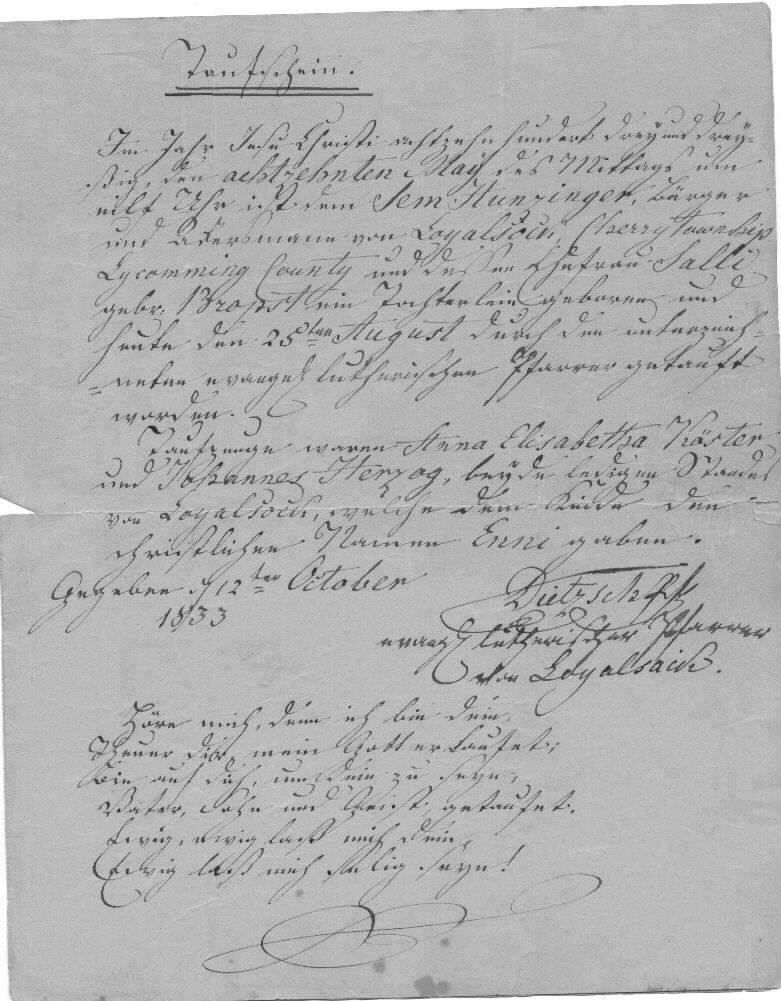 Taufschein.
Im Jahr Jesu Christi achtzehn hundert drey und drey-
ßig, den achtzehnten May des Mittags um
eilf Uhr ist dem Sem Hunzinger, Bürger
und Ackersmann von Loyalsock, Cherry Township
Lycomming County und dessen Ehefrau Salli
gebr: Bropst ein Töchterlein geboren und
heute den 25ten August durch den unterzeich-
=neten evangel lutherischen Pfarrer getauft
worden.
Taufzeuge waren Anna Elisabetha Köster
und Johannes Herzog, beyde ledigen Standes
von Loyalsock, welche dem Kinde den
christlichen Namen Enni gaben.
Gegeben d 12ten October
1833
Dietz
evangl lutherischer Pfarrer
von Loyalsaick.
Höre mich, denn ich bin dein,
Theuer dir, mein Gott erkaufet;
Bin auf dich, um dein zu seyn,
Vater, Sohn und Geist getaufet.
Ewig, ewig laß mich dein,
Ewig laß mich selig seyn!